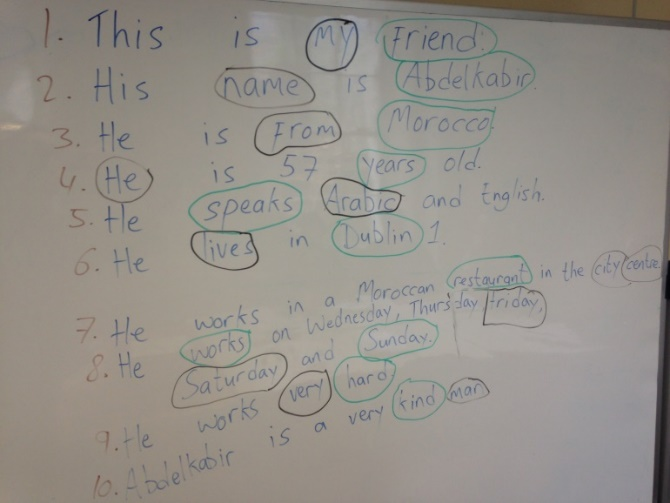 1. This is my Friend.
2. His name is Abdelkabir.
3. He is From Morocco.
4. He is 57 years old.
5. He speaks Arabic and English.
6. He lives in Dublin 1.
7. He works in a Moroccan restaurant in the city centre
8. He works on Wednesday, Thursday friday,
Saturday and Sunday.
9. He works very hard.
10. Abdelkabir is a very kind man